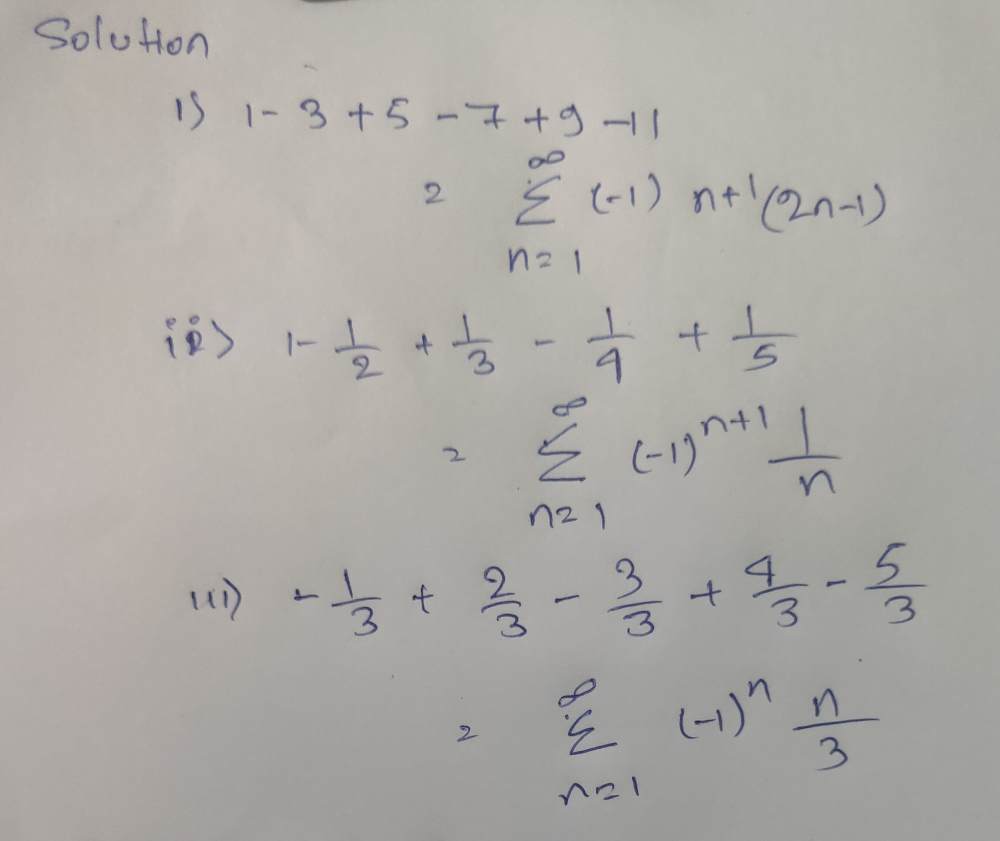 Solution
i) 1 - 3 + 5 - 7 + 9 - 11
= ∞ Σ n=1 (-1) n+1 (2n-1)
ii) 1 - 1/2 + 1/3 - 1/4 + 1/5
= ∞ Σ n=1 (-1)^n+1 1/n
iii) - 1/3 + 2/3 - 3/3 + 4/3 - 5/3
= ∞ Σ n=1 (-1)^n n/3